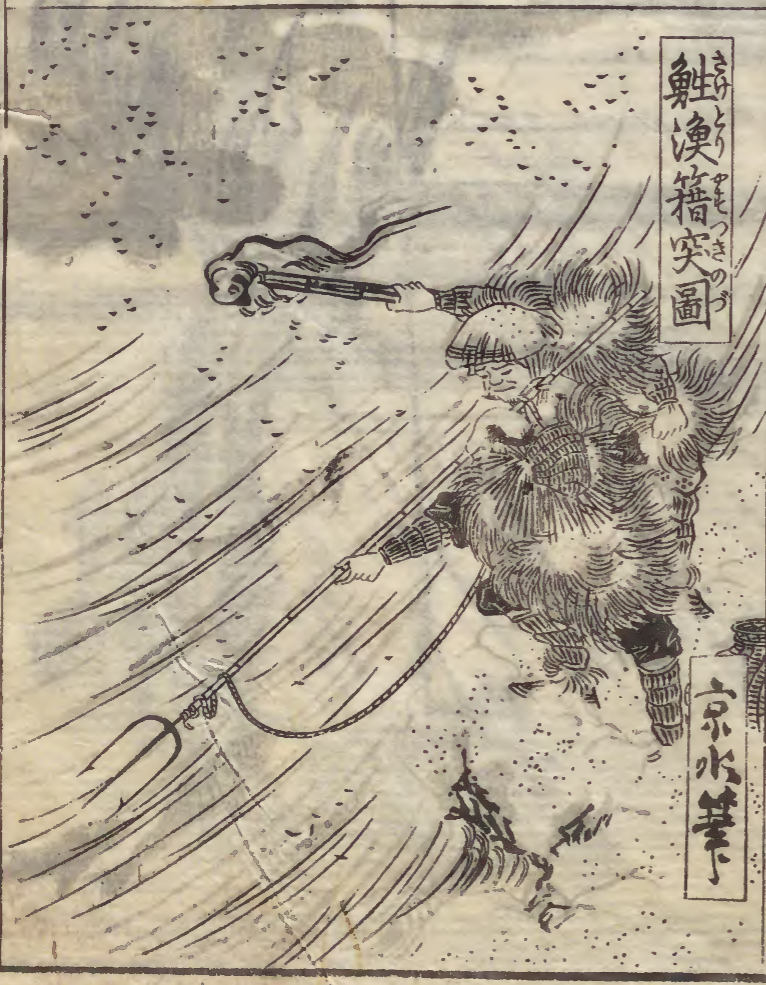 鮏漁籍突圖
さけとりやもつきのづ
京水筆